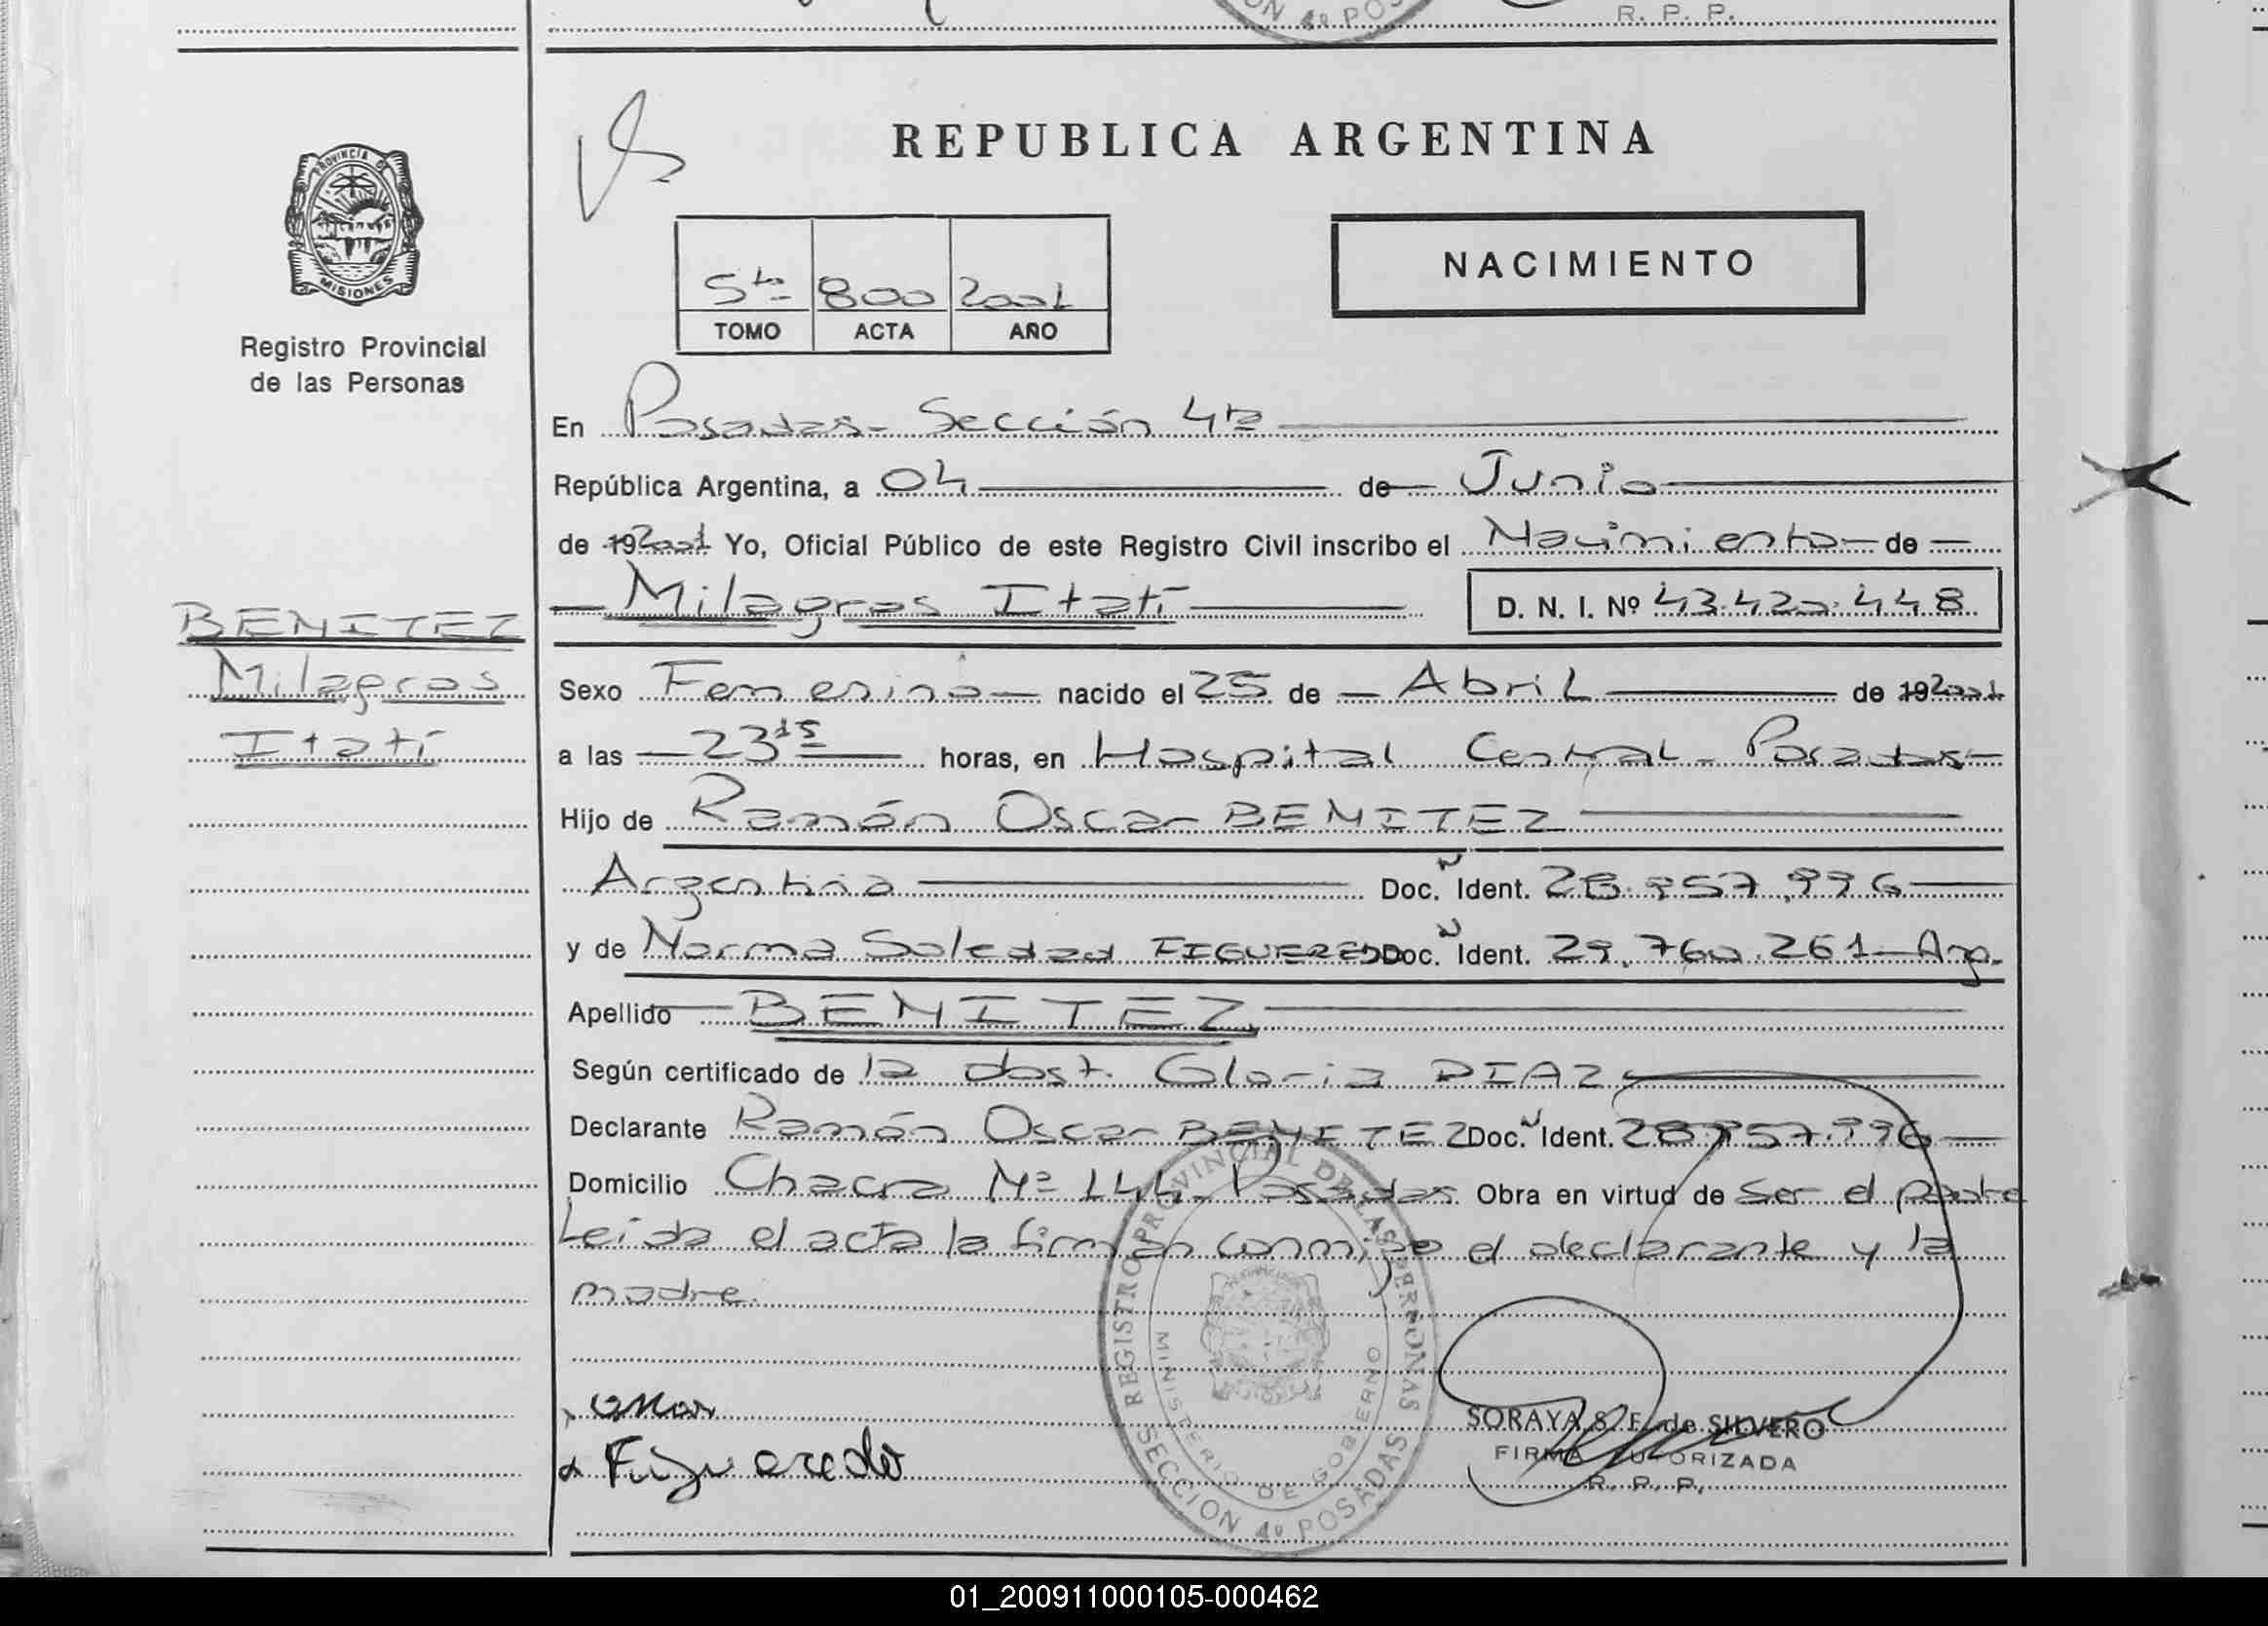 R. P. P.
REPUBLICA ARGENTINA
PROVINCIA DE MISIONES
NACIMIENTO
5to 800 2001
TOMO ACTA AÑO
Registro Provincial
de las Personas
En Posadas - Sección 4ta
República Argentina, a 04 de Junio
de 19 2001 Yo, Oficial Público de este Registro Civil inscribo el Nacimiento de
Milagros Itatí D. N. I. Nº 43.420.448
BENITEZ
Milagros
Itatí
Sexo Femenino nacido el 25 de Abril de 19 2001
a las 23 15 horas, en Hospital Central - Posadas
Hijo de Ramón Oscar BENITEZ
Argentina Doc. N Ident. 28.957.996
y de Norma Soledad FIGUEREDO Doc. N Ident. 29.760.261 - Arg.
Apellido BENITEZ
Según certificado de la obst. Gloria DIAZ
Declarante Ramón Oscar BENITEZ Doc. N Ident. 28.957.996
Domicilio Chacra Nº 144 - Posadas Obra en virtud de ser el padre
Leida el acta la firman conmigo el declarante y la
madre.
REGISTRO PROVINCIAL DE LAS PERSONAS
MINISTERIO DE GOBIERNO
SECCION 4º POSADAS
Figueredo
SORAYA S. F. de SILVERO
FIRMA AUTORIZADA
R. P. P.
01_200911000105-000462